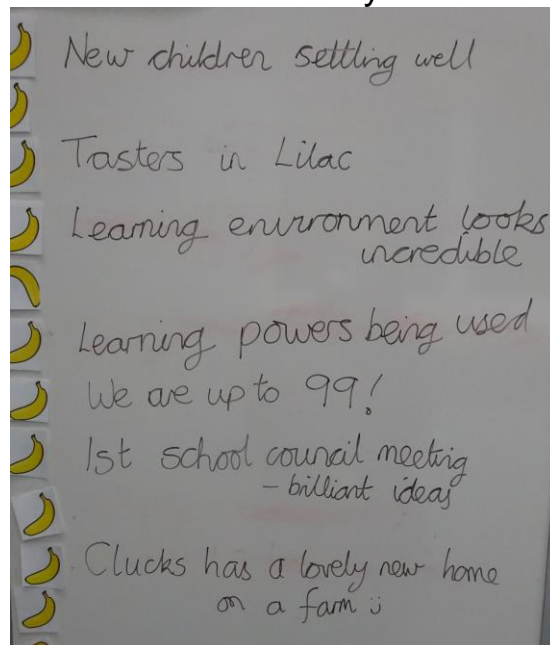 New children settling well
Tasters in Lilac
Learning environment looks
incredible
Learning powers being used
We are up to 99!
1st school council meeting
- brilliant ideas
Clucks has a lovely new home
on a farm ü